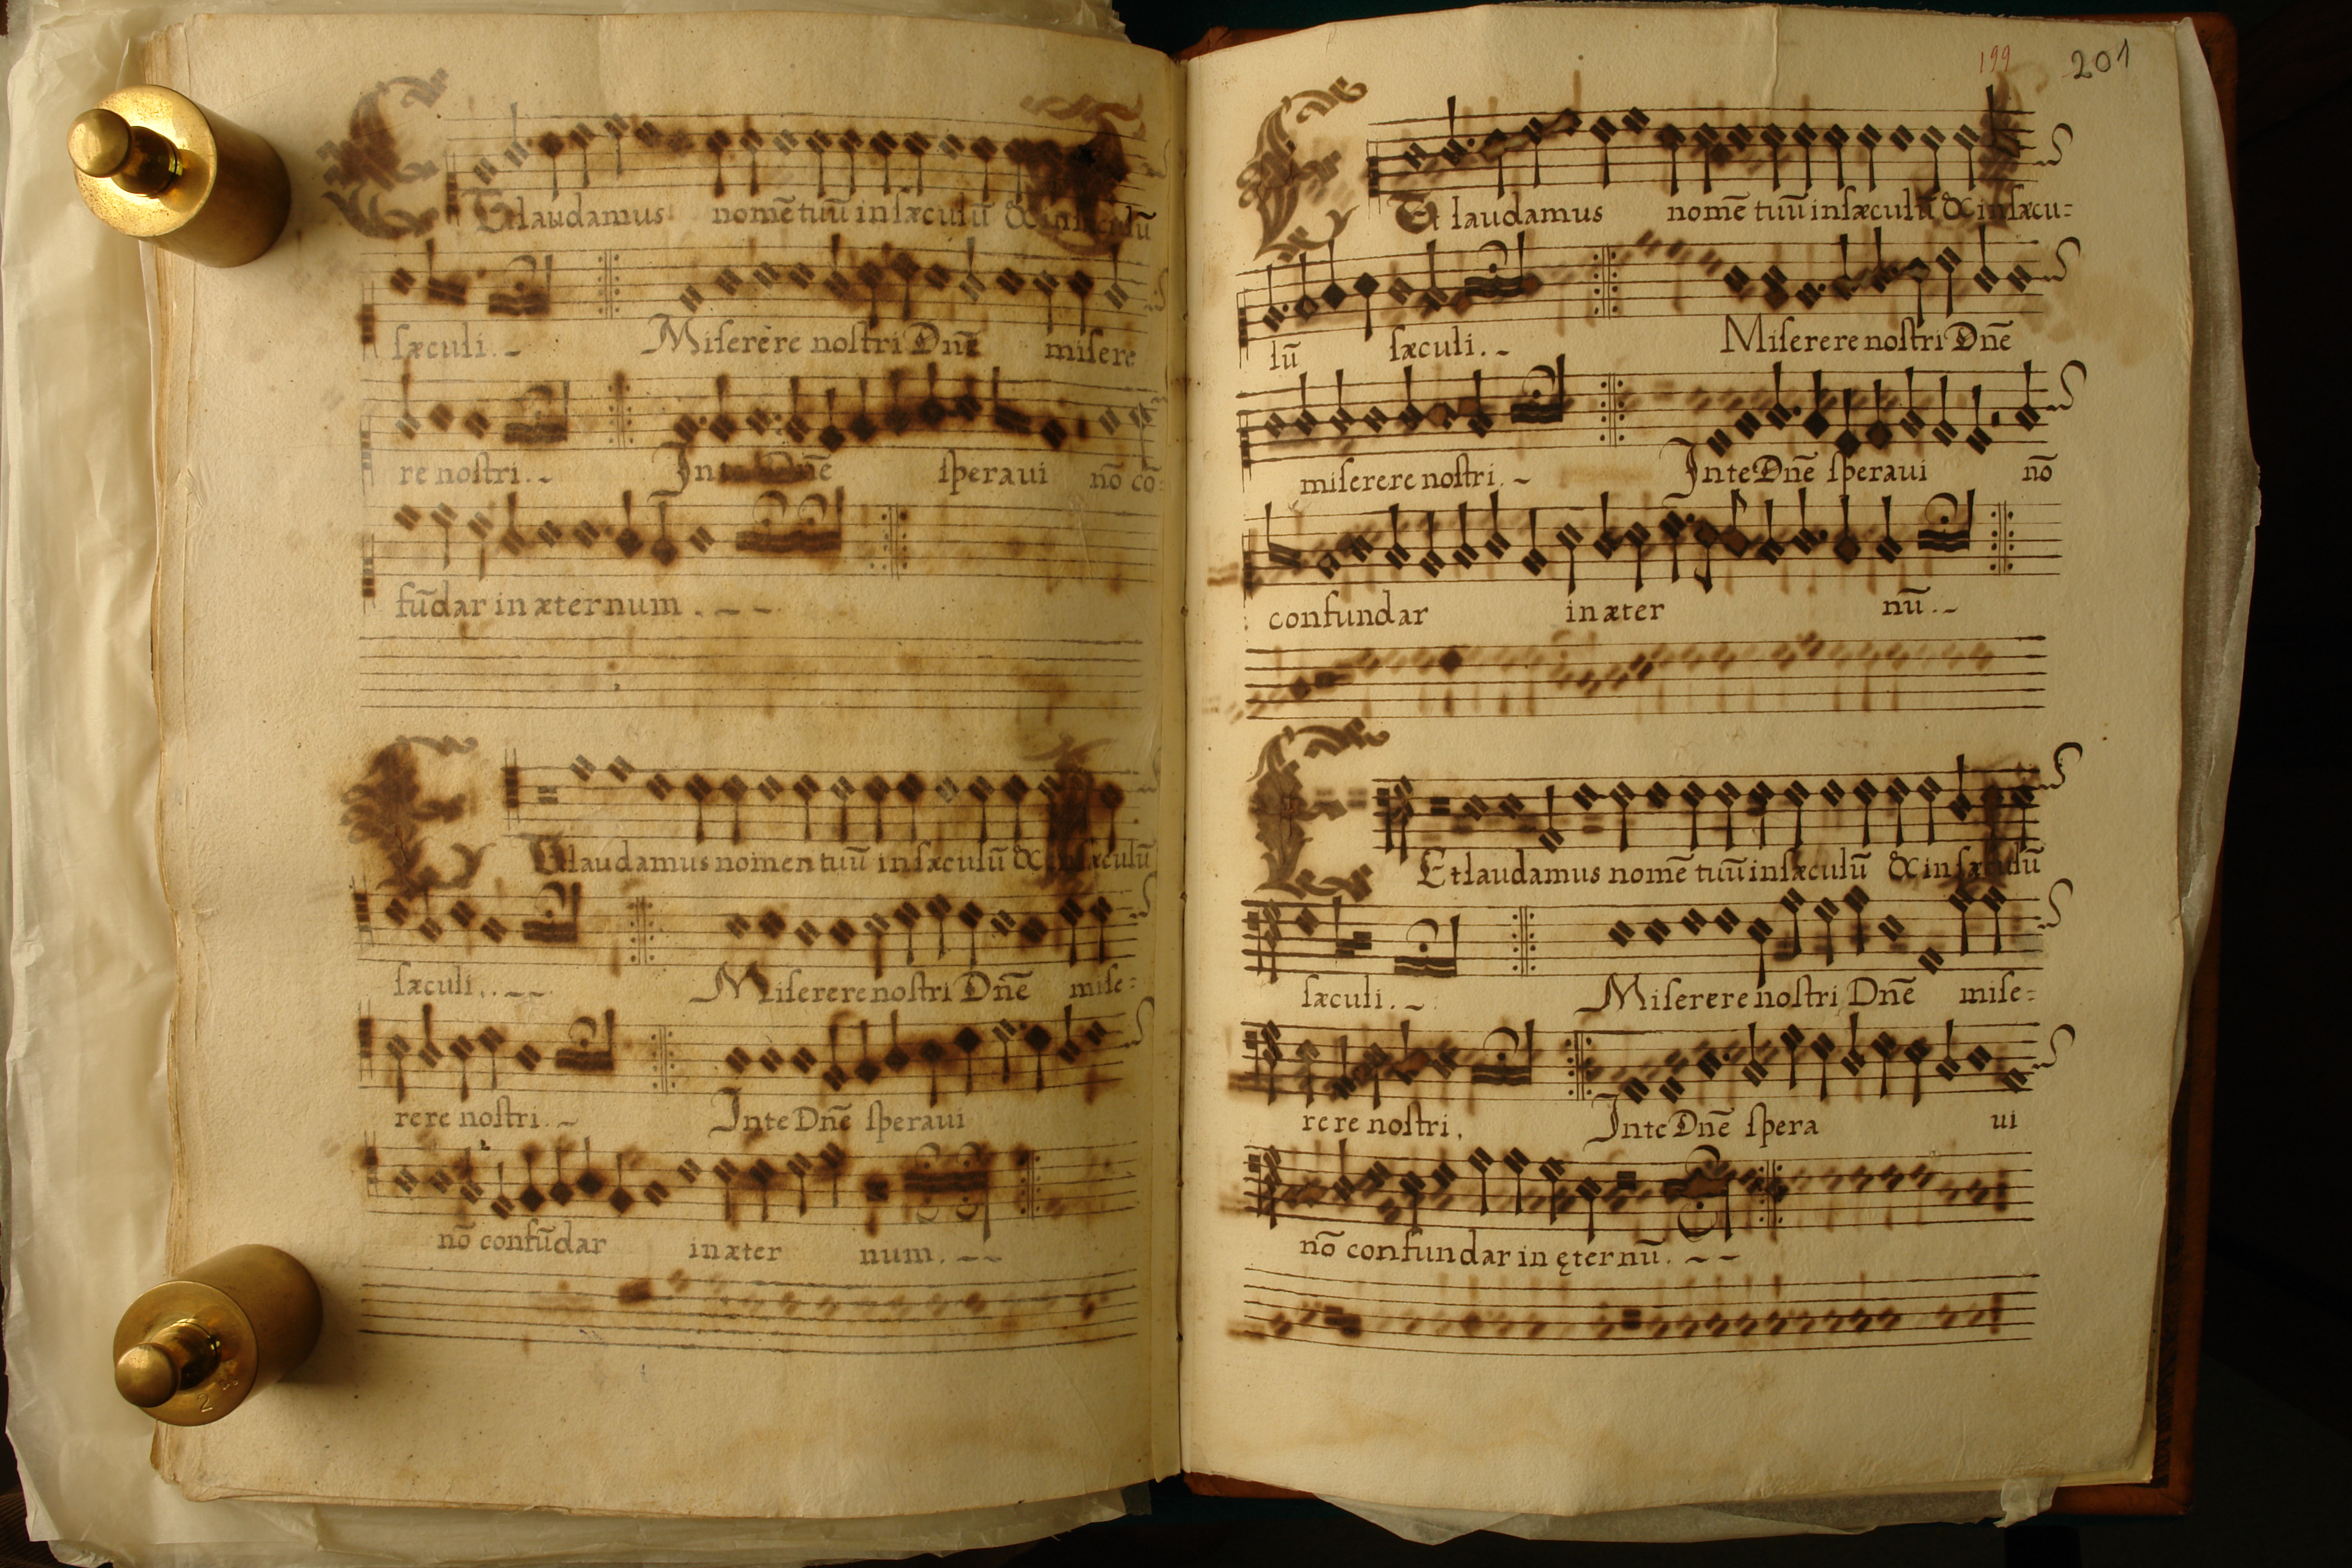 Et laudamus nomē tuū in sæculū & in sæculū
sæculi.
Miserere nostri Dnē misere
re nostri.
In te Dnē speraui nō cō=
fūdar in æternum.
Et laudamus nomen tuū in sæculū & in sæculū
sæculi.
Miserere nostri Dnē mise=
rere nostri.
In te Dnē speraui
nō confūdar in æter num.
199
201
Et laudamus nomē tuū in sæculū & in sæcu=
lū sæculi.
Miserere nostri Dnē
miserere nostri.
In te Dnē speraui nō
confundar in æter nū.
Et laudamus nomē tuū in sæculū & in sæculū
sæculi.
Miserere nostri Dnē mise=
rere nostri,
In te Dnē spera ui
nō confundar in ęternū.
2